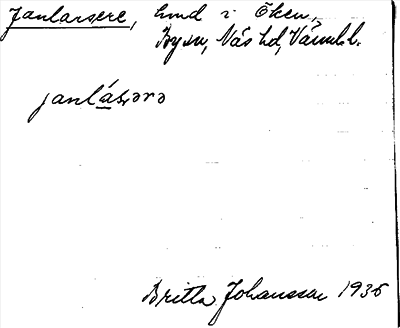 Janlarsere, hmd i Öken,
By sn, Näs hd, Värml.l.
janlásərə
Britta Johansson 1936